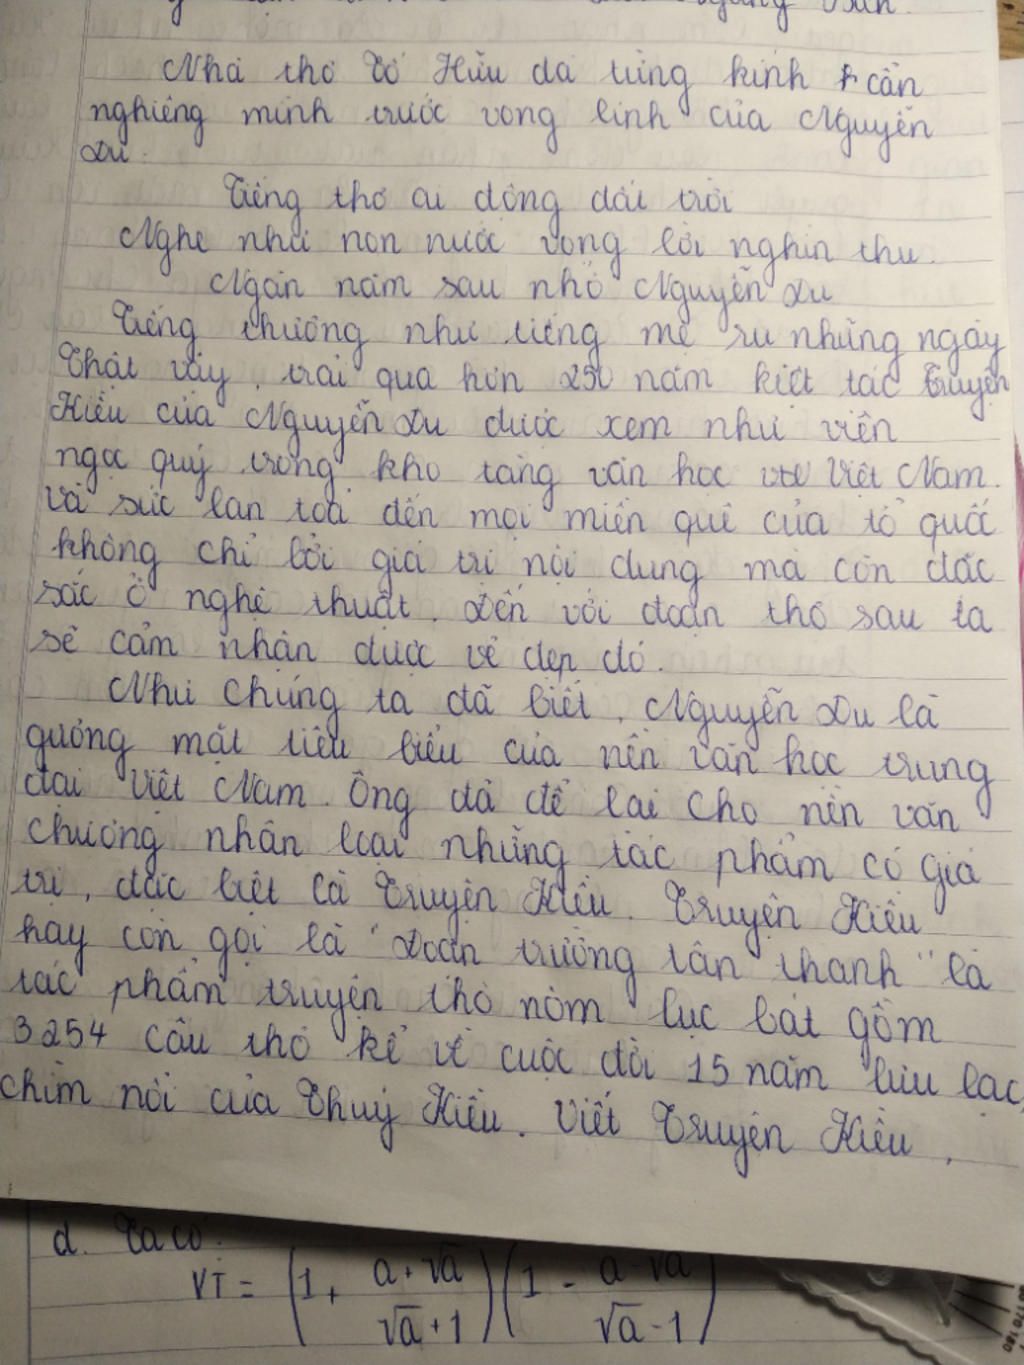 Nhà thơ Tố Hữu đã từng kính cẩn
nghiêng mình trước vong linh của Nguyễn
Du.
Tiếng thơ ai động đất trời
Nghe như non nước vọng lời nghìn thu.
Ngàn năm sau nhớ Nguyễn Du
Tiếng thương như tiếng mẹ ru những ngày
Thật vậy, trải qua hơn 250 năm kiệt tác Truyện
Kiều của Nguyễn Du được xem như viên
ngọc quý trong kho tàng văn học Việt Nam.
Và sức lan toả đến mọi miền quê của tổ quốc
không chỉ bởi giá trị nội dung mà còn đặc
sắc ở nghệ thuật. Đến với đoạn thơ sau ta
sẽ cảm nhận được vẻ đẹp đó.
Như chúng ta đã biết, Nguyễn Du là
gương mặt tiêu biểu của nền văn học trung
đại Việt Nam. Ông đã để lại cho nền văn
chương nhân loại những tác phẩm có giá
trị, đặc biệt là Truyện Kiều. Truyện Kiều
hay còn gọi là "Đoạn trường tân thanh" là
tác phẩm truyện thơ nôm lục bát gồm
3254 câu thơ kể về cuộc đời 15 năm lưu lạc,
chìm nổi của Thuý Kiều. Viết Truyện Kiều,
d. Ta có:
VT = (1 + a+√a / √a+1)(1 - a-√a / √a-1)